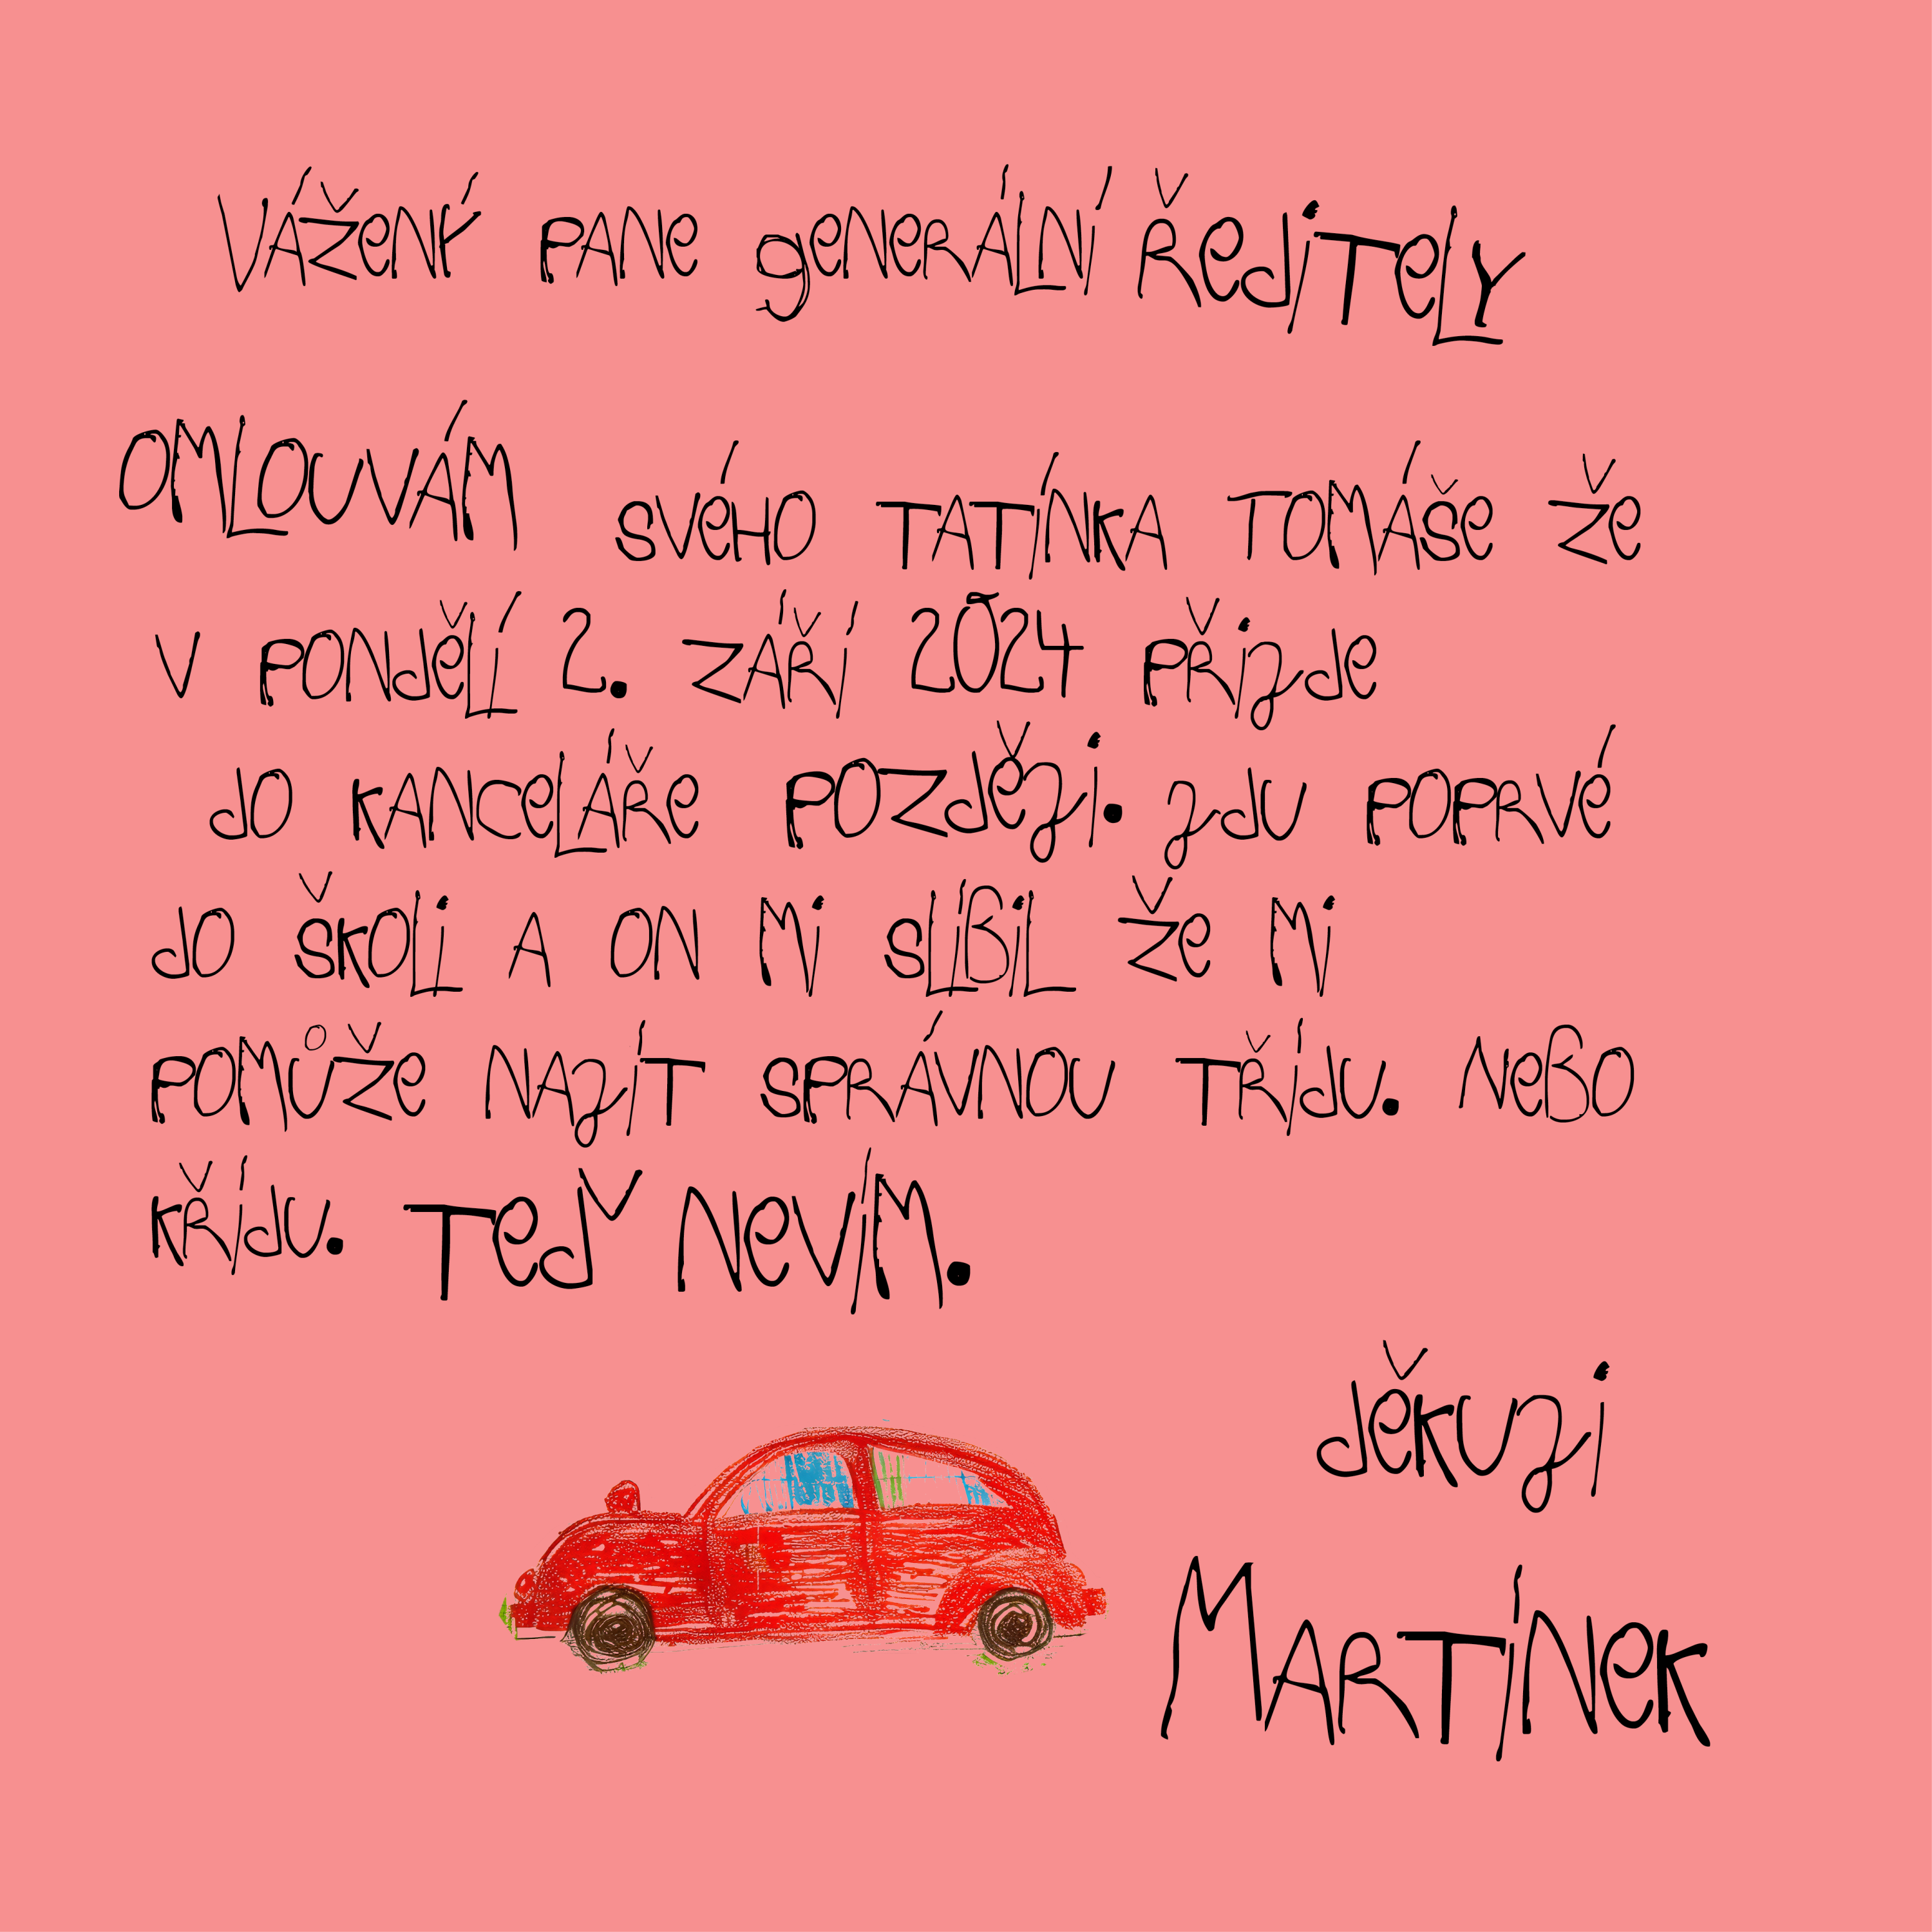 Vážený pane generální řediteli
omlouvám svého tatínka Tomáše že
v ponďelí 2. září 2024 přijde
do kanceláře pozdějí. jdu poprvé
do školi a on mi slíbil že mi
pomůže najít správnou třídu. Nebo
křídu. Teď nevím.
děkuji
Martínek